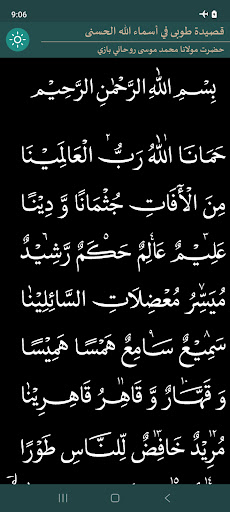 9:06
قصيدة طوبى في أسماء الله الحسنى
حضرت مولانا محمد موسى روحاني بازي
بِسْمِ اللهِ الرَّحْمٰنِ الرَّحِيْمِ
حَمَانَا اللهُ رَبُّ الْعَالَمِيْنَا
مِنَ الْأٰفَاتِ جُثْمَانًا وَّ دِيْنًا
عَلِيْمٌ عَالِمٌ حَكَمٌ رَشِيْدٌ
مُيَسِّرُ مُعْضِلَاتِ السَّائِلِيْنَا
سَمِيْعٌ سَامِعٌ هَمْسًا هَمِيْسًا
وَ قَهَّارٌ وَّ قَاهِرُ قَاهِرِيْنَا
مُرِيْدٌ خَافِضٌ لِّلنَّاسِ طَوْرًا